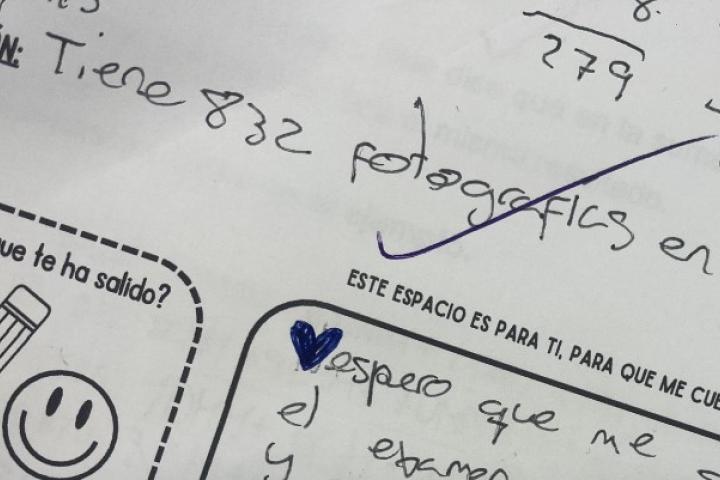 8.
279
N: Tiene 832 fotografías en
ue te ha salido?
ESTE ESPACIO ES PARA TI, PARA QUE ME CUE
espero que me
el examen
y